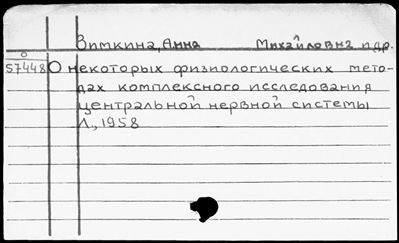 Зимкина, Анна Михайловна и др.
О
57448 О некоторых физиологических мето-
дах комплексного исследования
центральной нервной системы
Л., 1958